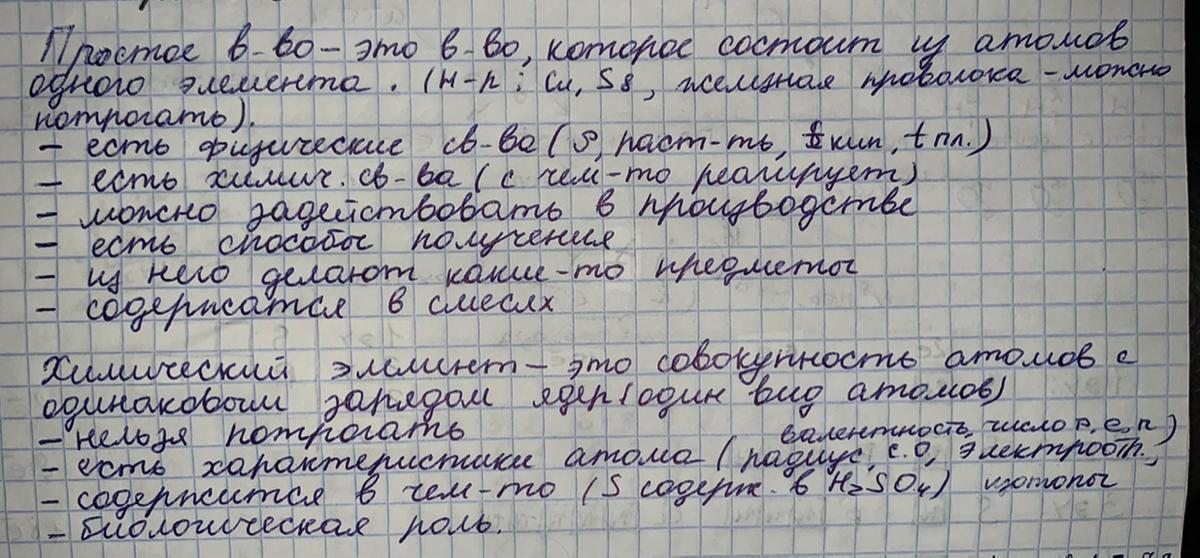 Простое в-во – это в-во, которое состоит из атомов
одного элемента. (Н-р: Cu, S8, железная проволока – можно
потрогать).
– есть физические св-ва (ρ, раст-ть, t кип, t пл.)
– есть химич. св-ва (с чем-то реагирует)
– можно задействовать в производстве
– есть способы получения
– из него делают какие-то предметы
– содержатся в смесях
Химический элемент – это совокупность атомов с
одинаковым зарядом ядер (один вид атомов)
– нельзя потрогать
валентность, число p, e, n)
– есть характеристики атома (радиус, с.О, электроот.,
– содержится в чем-то (S содерж. в H₂SO₄) изотопы
– биологическая роль.